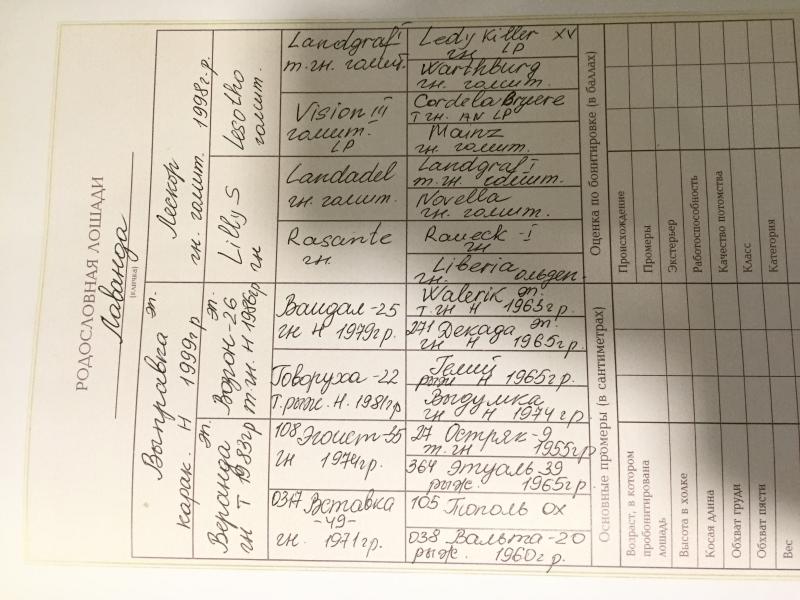 РОДОСЛОВНАЯ ЛОШАДИ
Лаванда
(кличка)
Выправка эт.
карак. Н 1999г.р
Лескор
гн. голшт. 1998г.р.
Веранда эт.
гн Т 1983гр
Ворон-26 эт.
т.гн. Н 1986гр
Lilly S
гн
Lesotho
голшт.
0317 Вставка
-49-
гн. 1971гр.
108 Эгоист-35
гн 1974гр.
Говоруха-22
т.рыж. Н. 1981гр
Вандал-25
гн Н 1979гр.
Rasante
гн.
Landadel
гн. голшт.
Vision III
голшт.
LP
Landgraf I
т.гн. голшт.
038 Вальта-20
рыж. 1960г р.
105 Тополь ох
364 Этуаль 39
рыж. 1965гр.
27 Остряк-9
т.гн 1955гр
Выдумка
гн Н 1974гр.
рыж Н 1965гр.
271 Декада эт.
гн Н 1965гр.
Walerik эт.
т.гн Н 1963гр.
Liberia
гн. ольден.
Raueck-I
гн
Novella
гн. голшт.
Landgraf I
т.гн. голшт.
Mainz
гн. голшт.
Cordela Bryere
т гн. AN LP
Warthburg
гн. голшт.
Ledy Killer XV
гн. LP
Основные промеры (в сантиметрах)
Оценка по бонитировке (в баллах)
Возраст, в котором
пробонитирована
лошадь
Происхождение
Высота в холке
Промеры
Косая длина
Экстерьер
Обхват груди
Работоспособность
Обхват пясти
Качество потомства
Вес
Класс
Категория